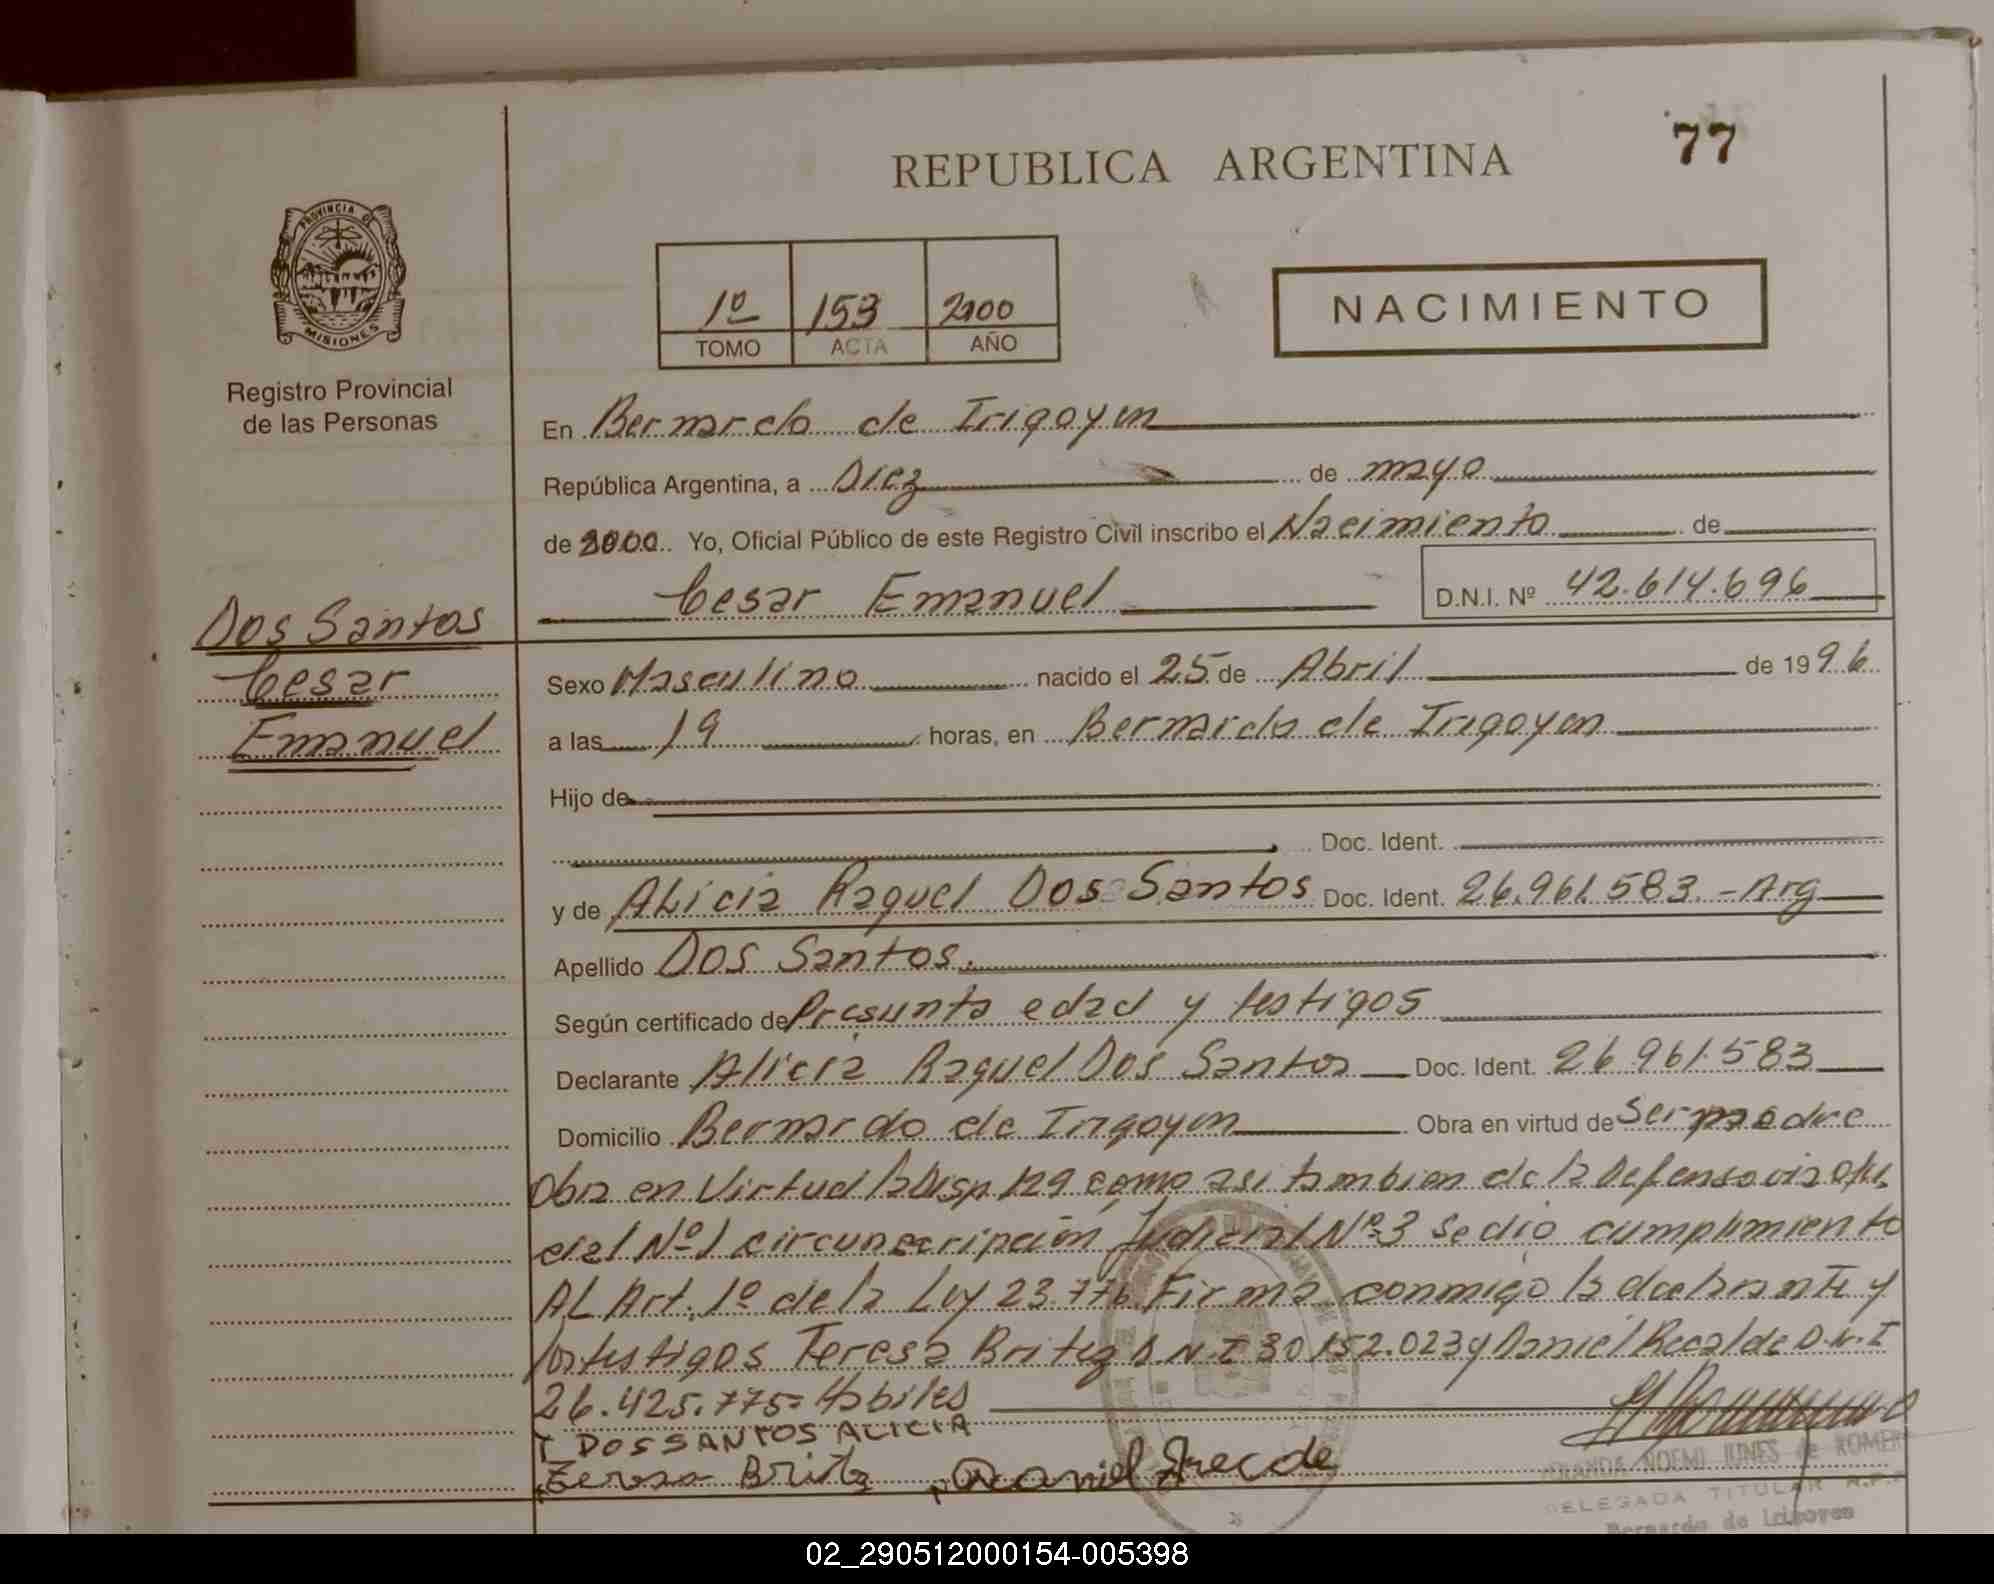 77
REPUBLICA ARGENTINA
PROVINCIA DE
MISIONES
Registro Provincial
de las Personas
1º 153 2000
TOMO ACTA AÑO
NACIMIENTO
En Bernardo de Irigoyen
República Argentina, a Diez de mayo
de 2000 Yo, Oficial Público de este Registro Civil inscribo el Nacimiento de
Cesar Emanuel D.N.I. Nº 42.614.696
Dos Santos
Cesar
Emanuel
Sexo Masculino nacido el 25 de Abril de 1996
a las 19 horas, en Bernardo de Irigoyen
Hijo de
Doc. Ident.
y de Alicia Raquel Dos Santos Doc. Ident. 26.961.583.- Arg
Apellido Dos Santos.
Según certificado de Presunta edad y testigos
Declarante Alicia Raquel Dos Santos Doc. Ident. 26 961.583
Domicilio Bernardo de Irigoyen Obra en virtud de Ser madre
Obra en Virtud la Disp 129 como asi tambien de la Defensoria Ofi
cial Nº 1 circunscripción Judicial Nº 3 se dio cumplimiento
AL Art. 1º de la Ley 23.776 Firma conmigo la declarante y
los testigos Teresa Britez D.N.I 30 152.023 y Daniel Recalde D.N.I
26.425.775= Habiles
DOS SANTOS ALICIA
Teresa Britz Daniel
NOEMI JUNES de ROMERO
DELEGADA TITULAR R.P.P.
Bernardo de Irigoyen
02_290512000154-005398